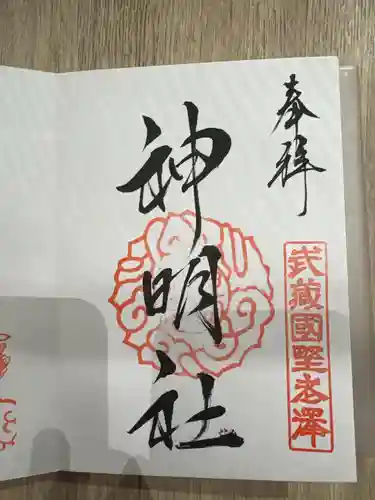 奉拝
武藏國野老澤
神明社